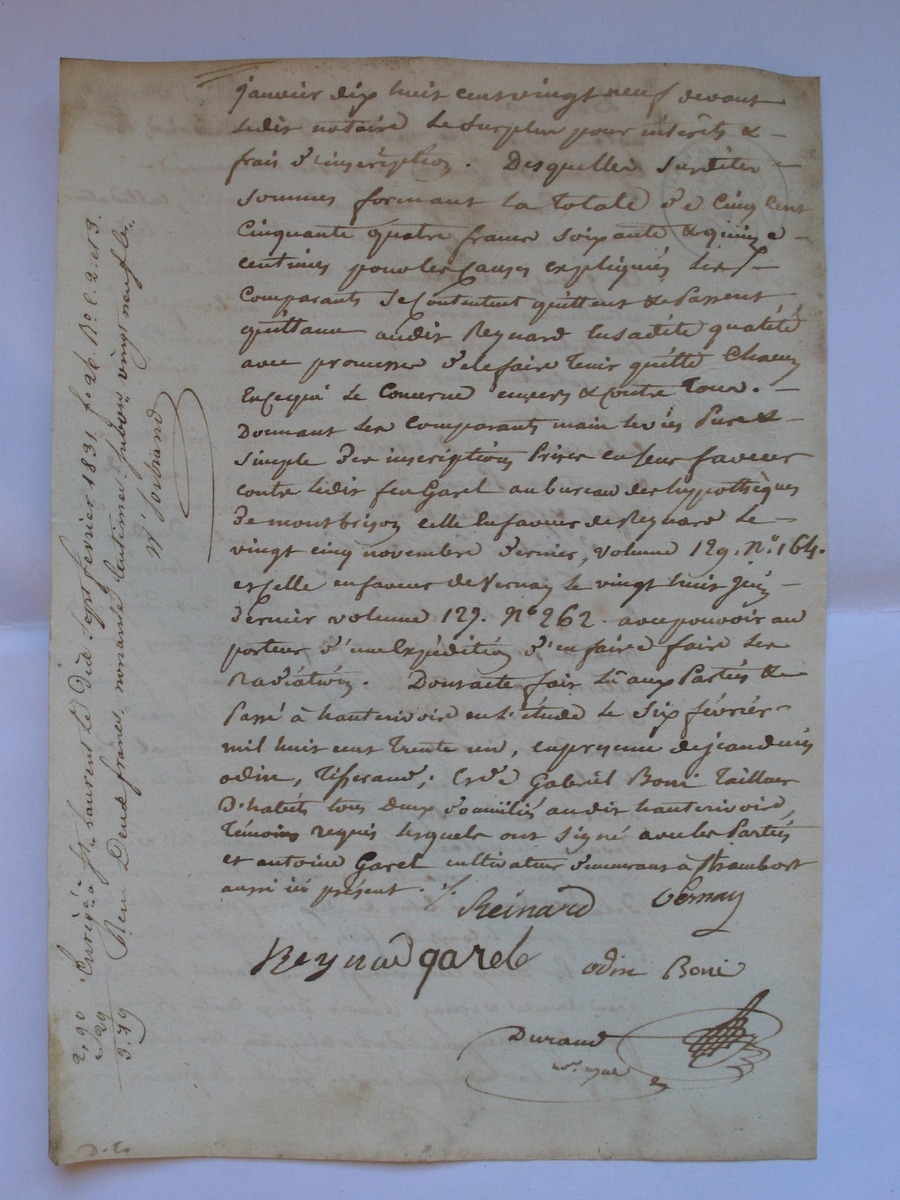 janvier dix huit cent vingt neuf devant
ledit notaire le surplus pour intérêts &
frais d'inscription. Desquelles susdites
sommes formant la totale de Cinq Cent
Cinquante quatre francs soixante & quinze
centimes pour les Causes expliquées les
Comparants se Contentent quittent & Passent
quittance audit Reynard en sadite qualité
avec promesse de le faire tenir quitte Chacun
En ce qui le Concerne envers & contre Tous.
Donnant les comparants main levée Pure &
simple des inscriptions Prises en leur faveur
contre ledit feu Garel au bureau des hypothèques
de montbrison celle en faveur de Reynard le
vingt cinq novembre dernier, volume 129. No. 164.
et celle en faveur de Vernay le vingt huit juin
dernier volume 127. No 262 avec pouvoir au
porteur d'une Expédition d'en faire faire les
Radiation. Dont acte fait lu aux Parties &
Passé à hauterivoire en l'étude le six février
mil huit cent Trente un, en presence de jean
odin, Tisserand; Et de Gabriel Boni Tailleur
D'habits tous deux domiciliés audit hauterivoire,
Témoins requis lesquels ont signé avec les Parties
et antoine Garel cultivateur demeurant à
aussi ici présent ./.
Reinard Vernay
Reynard garel odin Boni
Durand
Enrégé à St. Laurent le Dix Sept février 1831. fo. 26. Ro. C. 2. et 3.
Reçu Deux francs nonante Centimes, subvon. vingt neuf c.
2,90
29
3.19